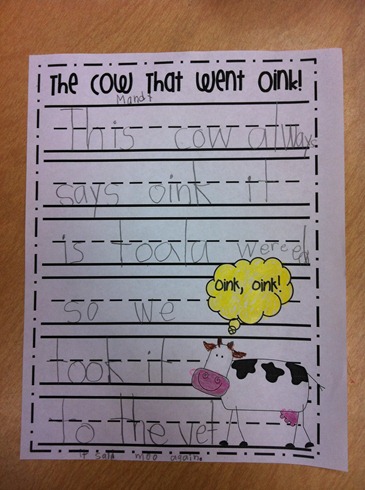 The Cow That Went Oink!
This cow always
says oink it
is toalu
Oink, oink!
so we
took it
to the vet
it said moo again.